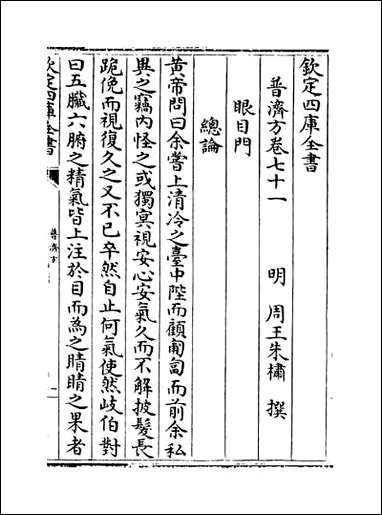 欽定四庫全書
普濟方卷七十一
明 周王朱橚 撰
眼目門
總論
黄帝問曰余嘗上清冷之臺中陛而顧匍匐而前余私
異之竊内怪之或獨冥視安心安氣久而不解披髮長
跪俛而視復久之又不已卒然自止何氣使然岐伯對
曰五臟六腑之精氣皆上注於目而為之睛睛之果者
欽定四庫全書
普濟方